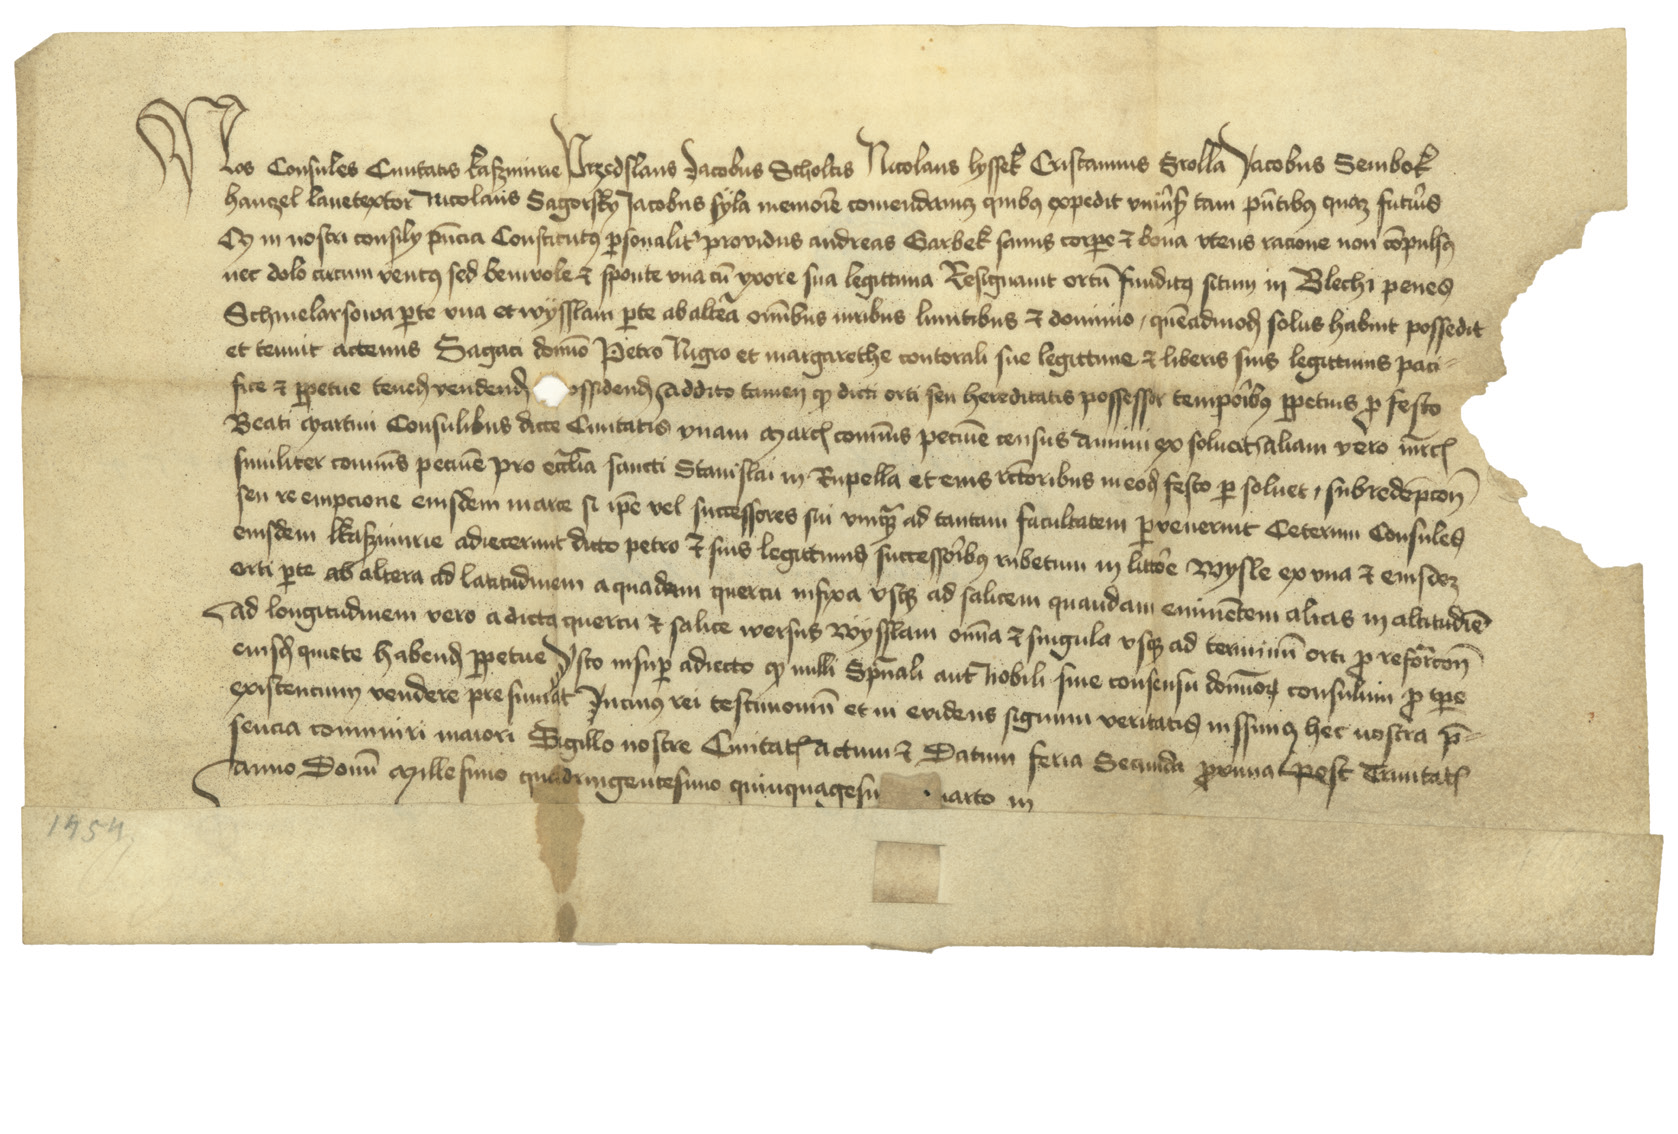 Nos Consules Ciuitatis kaszmirie Przedslaus Jacobus Scholtis Nicolaus lyssek Cristannus Grolla Jacobus Sembok
hanczel lanetextor Nicolaus Sagorsky Jacobus syla memorie comendamus quibus expedit vniuersis tam pntibus quam futuris
Qz in nostri consily pncia Constitutus psonalit prouidus andreas Garbek sanus corpe et bona vtens racione non compulsus
nec dolo circum ventus sed beniuole et sponte vna cu vxore sua legittima Resignauit ortu funditus situm in Blech penes
Schmelarsowa pte vna et wysslam pte ab altera omibus iuribus limitibus et dominio quemadmod solus habuit possedit
et tenuit actenus Sagaci domino Petro Nigro et margarethe contorali sue legittime et liberis suis legittimis paci-
fice et ppetue tenend vendend ossidend addito tamen qz dicti orti seu hereditatis possessor temporibus ppetuis p festo
Beati Martini Consulibus dicte Ciuitatis vnam March comunis pecunie census annui ex soluet aliam vero mrch
similiter comunis pecunie pro ecclia sancti Stanislai in Rupella et eius rectoribus in eod festo p soluet sub redempcon
seu re empcione eiusdem marce si ipe vel successores sui vmquam ad tantam facultatem p venerint Ceterum Consules
eiusdem kaszmirie adiecerunt dicto petro et suis legittimis successoribus rubetum in littore Wysle ex vna et eiusdem
orti pte ab altera ad latitudinem a quadam quercu infixa vsqz ad salicem quandam eminentem alicas in altitudie
ad longitudinem vero a dicta quercu et salice wersus Wysslam omia et singula vsqz ad terminu orti p reformacon
eiusd quiete habend ppetue Isto insup adiecto qz nulli Spuali aut Nobili sine consensu dominorum consulum p tpe
existencium vendere presumat In cuius rei testimoniu et in euidens signum veritatis iussimus hec nostra p-
sencia communiri maiori Sigillo nostre Ciuitatis Actum et Datum feria Secunda proxima post Trinitatis
Anno Domi Millesimo quadringentesimo quinquagesi uarto in
1454